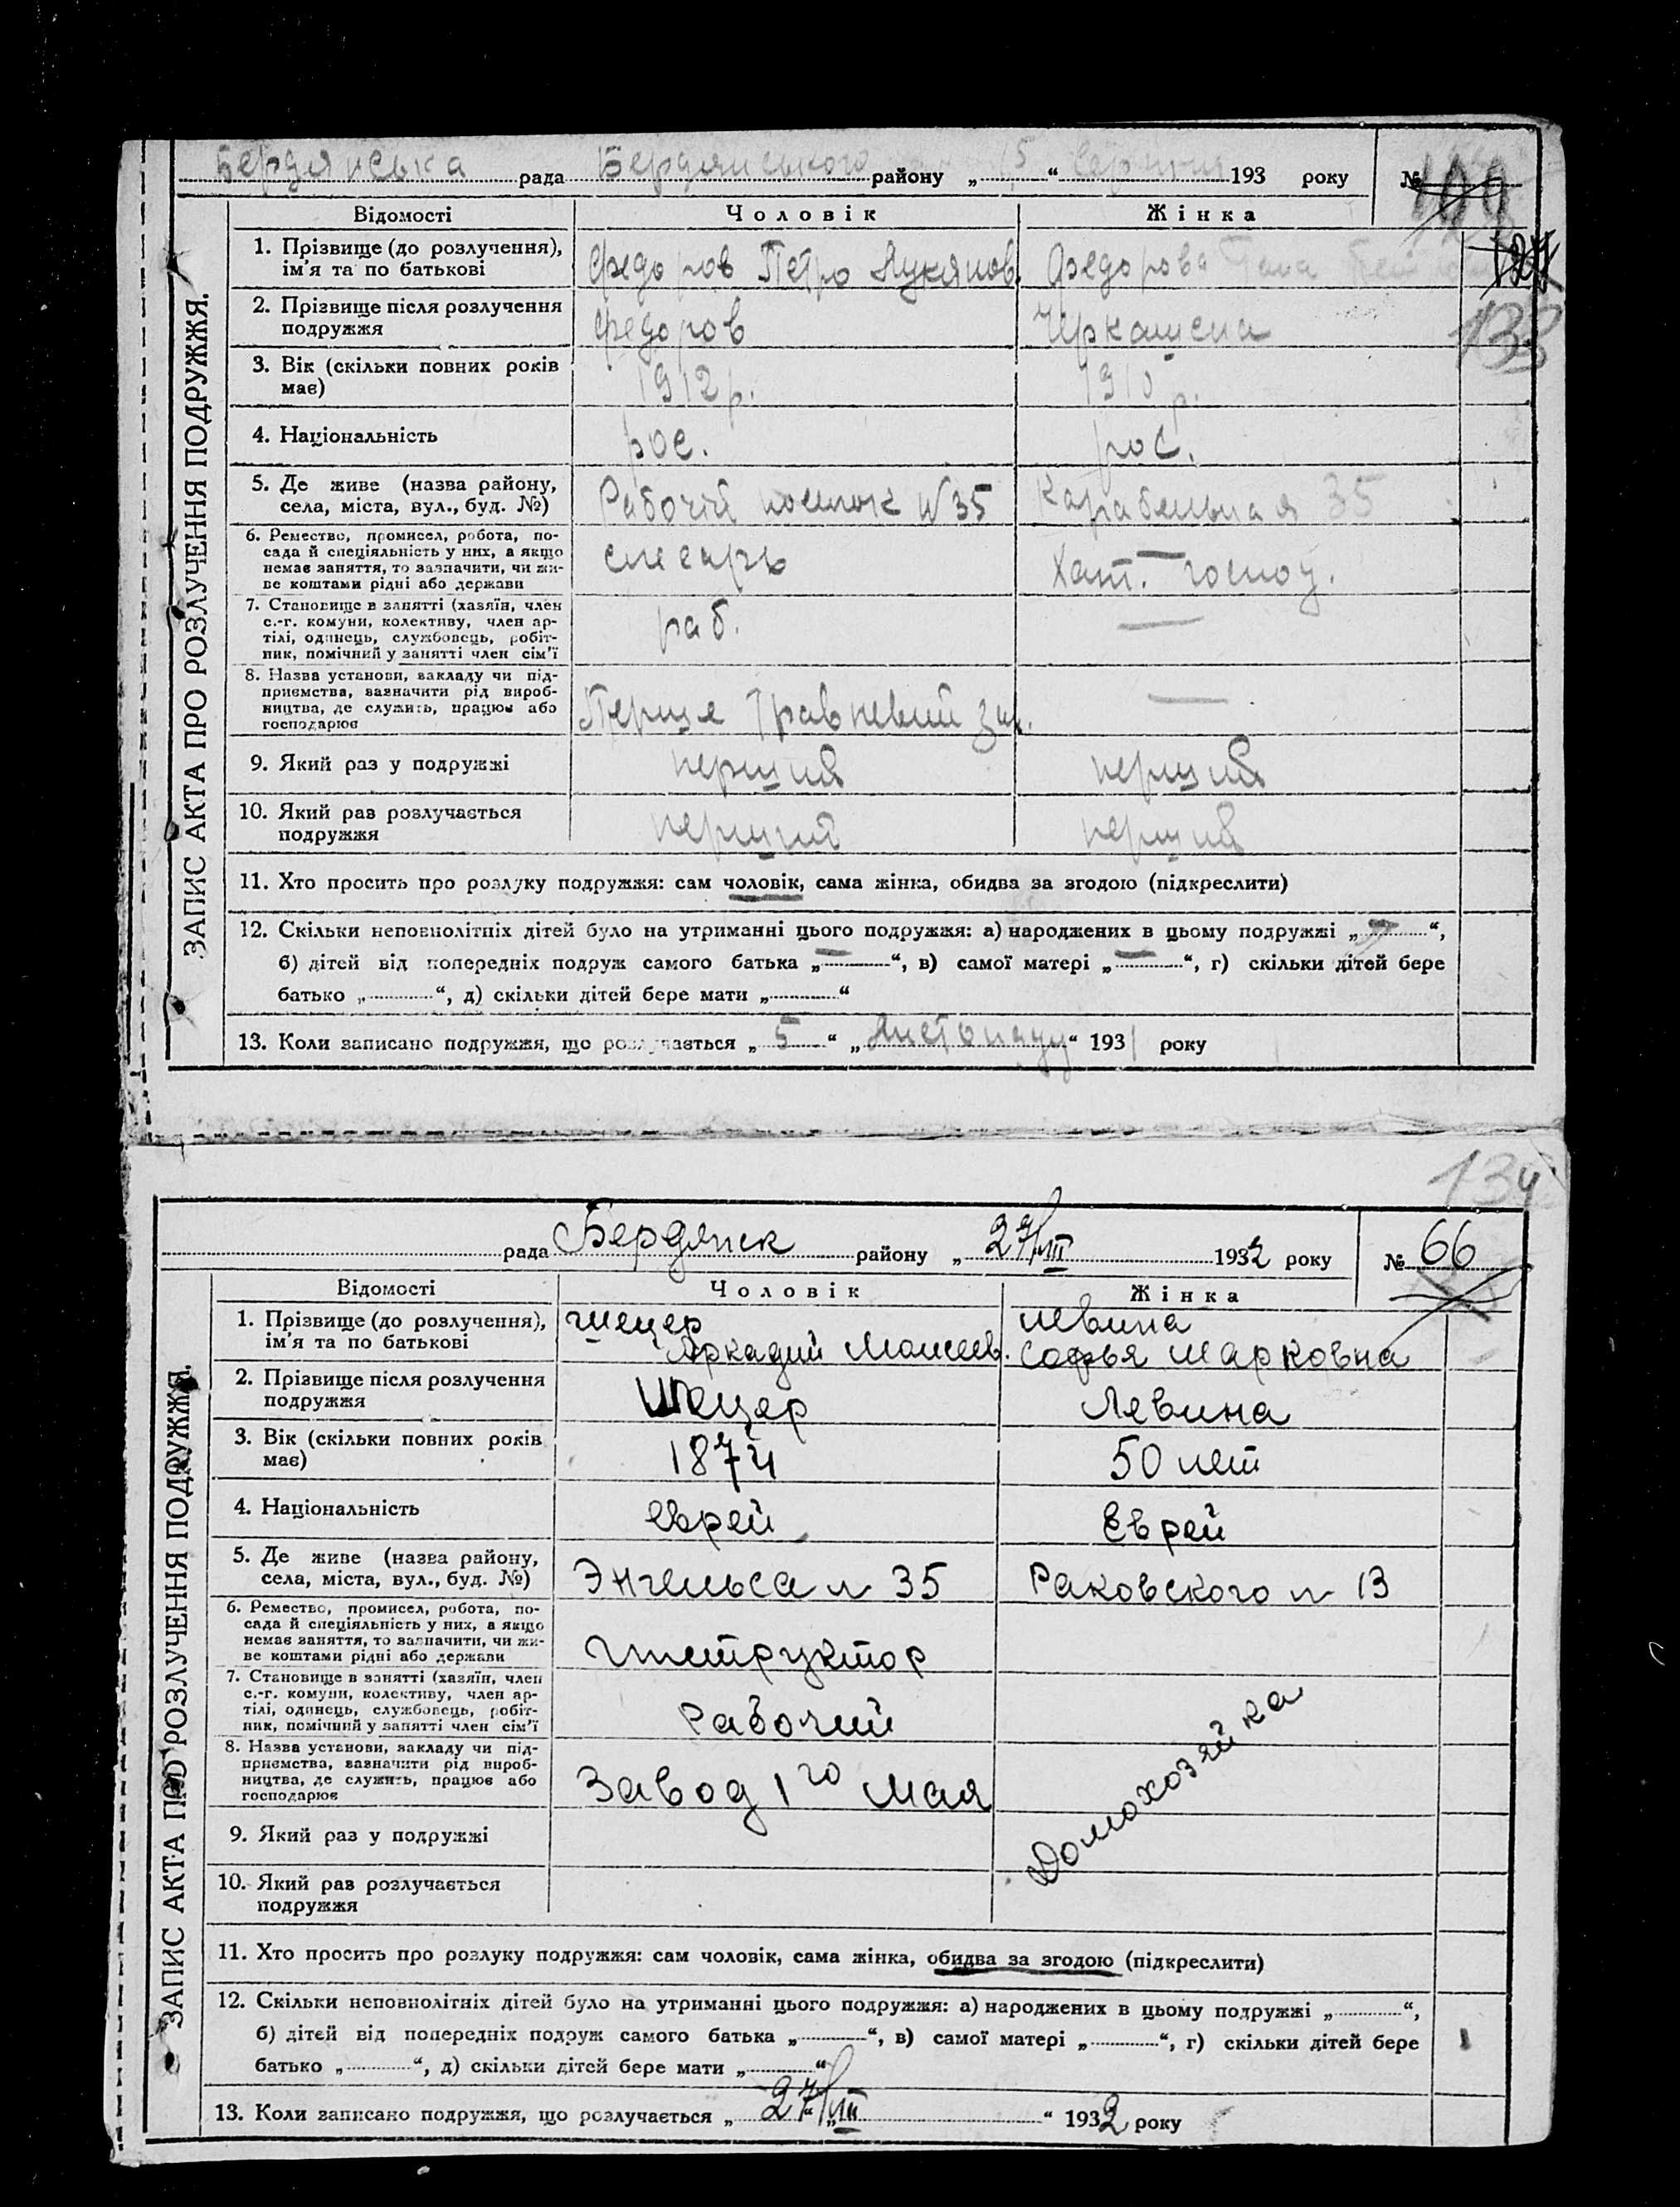 Бердянська рада Бердянського району „ 5 “ Серпня 193 року №
ЗАПИС АКТА ПРО РОЗЛУЧЕННЯ ПОДРУЖЖЯ.
Відомості Чоловік Жінка
1. Прізвище (до розлучення), ім'я та по батькові Федоров Петро Лукянов. Федорова
2. Прізвище після розлучення подружжя Федоров Черкашена
133
3. Вік (скільки повних років має) 1912 р. 1910 р.
4. Національність рос. рос.
5. Де живе (назва району, села, міста, вул., буд. №) Рабочій посилок N 35 Карабельная 35
6. Ремество, промисел, робота, по-
сада й спеціяльність у них, а якщо
немає заняття, то зазначити, чи жи-
ве коштами рідні або держави слесарь Хат. господ.
7. Становище в занятті (хазяїн, член
с.-г. комуни, колективу, член ар-
тілі, одинець, службовець, робіт-
ник, помічний у занятті член сім'ї раб. —
8. Назва установи, закладу чи під-
приємства, зазначити рід вироб-
ництва, де служить, працює або
господарює Перше Травневий зав. —
9. Який раз у подружжі перший перший
10. Який раз розлучається подружжя перший перший
11. Хто просить про розлуку подружжя: сам чоловік, сама жінка, обидва за згодою (підкреслити)
12. Скільки неповнолітніх дітей було на утриманні цього подружжя: а) народжених в цьому подружжі „ — “,
б) дітей від попередніх подруж самого батька „ — “, в) самої матері „ — “, г) скільки дітей бере
батько „ “, д) скільки дітей бере мати „ “
13. Коли записано подружжя, що розлучається „ 5 “ „ Листопаду “ 1931 року
134
рада Бердянск району „ 29/VIII 1932 року № 66
ЗАПИС АКТА ПРО РОЗЛУЧЕННЯ ПОДРУЖЖЯ.
Відомості Чоловік Жінка
1. Прізвище (до розлучення), ім'я та по батькові Шецер Аркадий Моисеев. Левина Софья Марковна
2. Прізвище після розлучення подружжя Шецер Левина
3. Вік (скільки повних років має) 1874 50 лет
4. Національність еврей Еврей
5. Де живе (назва району, села, міста, вул., буд. №) Энгельса № 35 Раковского № 13
6. Ремество, промисел, робота, по-
сада й спеціяльність у них, а якщо
немає заняття, то зазначити, чи жи-
ве коштами рідні або держави Инструктор
7. Становище в занятті (хазяїн, член
с.-г. комуни, колективу, член ар-
тілі, одинець, службовець, робіт-
ник, помічний у занятті член сім'ї Рабочий
Домохозяйка
8. Назва установи, закладу чи під-
приємства, зазначити рід вироб-
ництва, де служить, працює або
господарює Завод 1го Мая
9. Який раз у подружжі
10. Який раз розлучається подружжя
11. Хто просить про розлуку подружжя: сам чоловік, сама жінка, обидва за згодою (підкреслити)
12. Скільки неповнолітніх дітей було на утриманні цього подружжя: а) народжених в цьому подружжі „ “,
б) дітей від попередніх подруж самого батька „ “, в) самої матері „ “, г) скільки дітей бере
батько „ “, д) скільки дітей бере мати „ “
13. Коли записано подружжя, що розлучається „ 27/VIII “ 1932 року